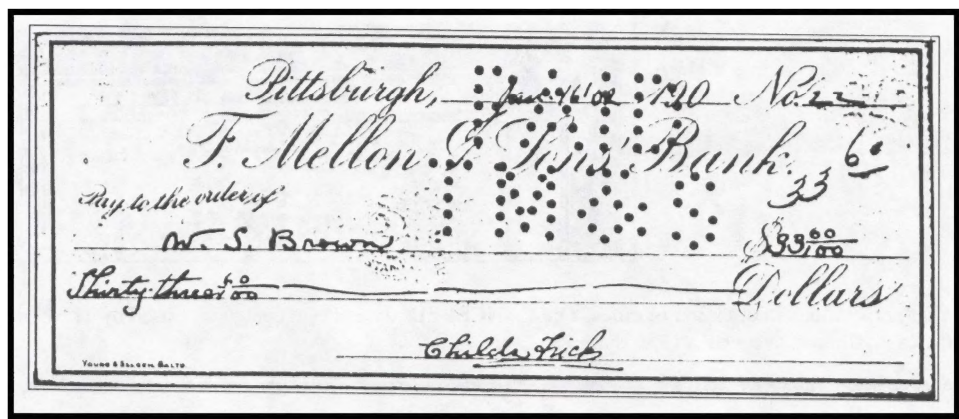 Pittsburgh, 16 '02 190 No. 22
T. Mellon & Sons' Bank.
33 60
Pay to the order of
W. S. Brown $33 60/100
Thirty three 60/100 Dollars
Childs Frick
YOUNG & SELDEN BALTO